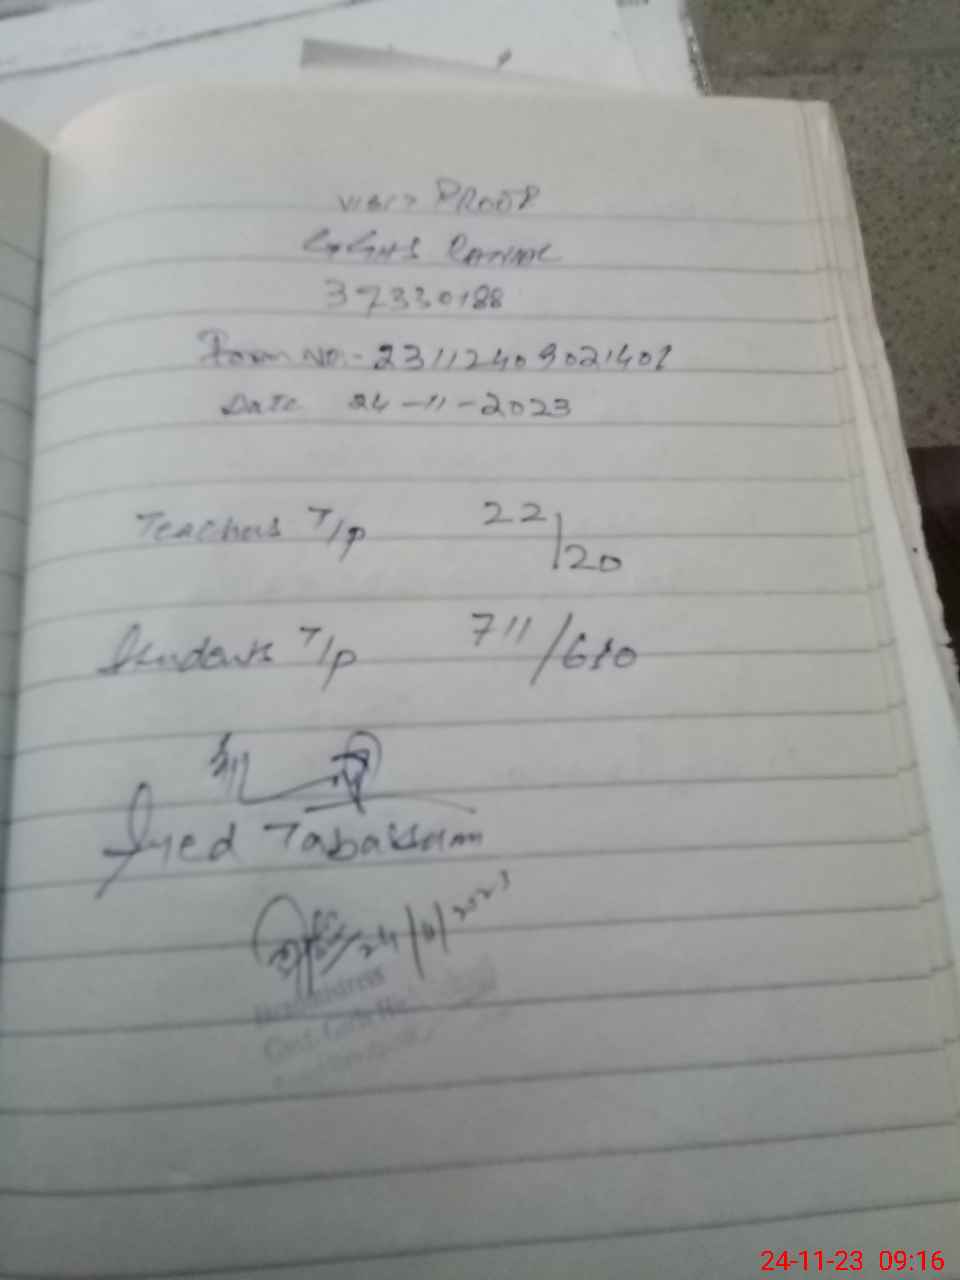 VISIT PROOF
GGHS
37330188
Form No:- 23112409021401
Date 24-11-2023
Teachers T/P 22/20
Students T/P 711/680
Syed Tabassum
24/11/2023
Headmistress
Govt. Girls High
24-11-23 09:16